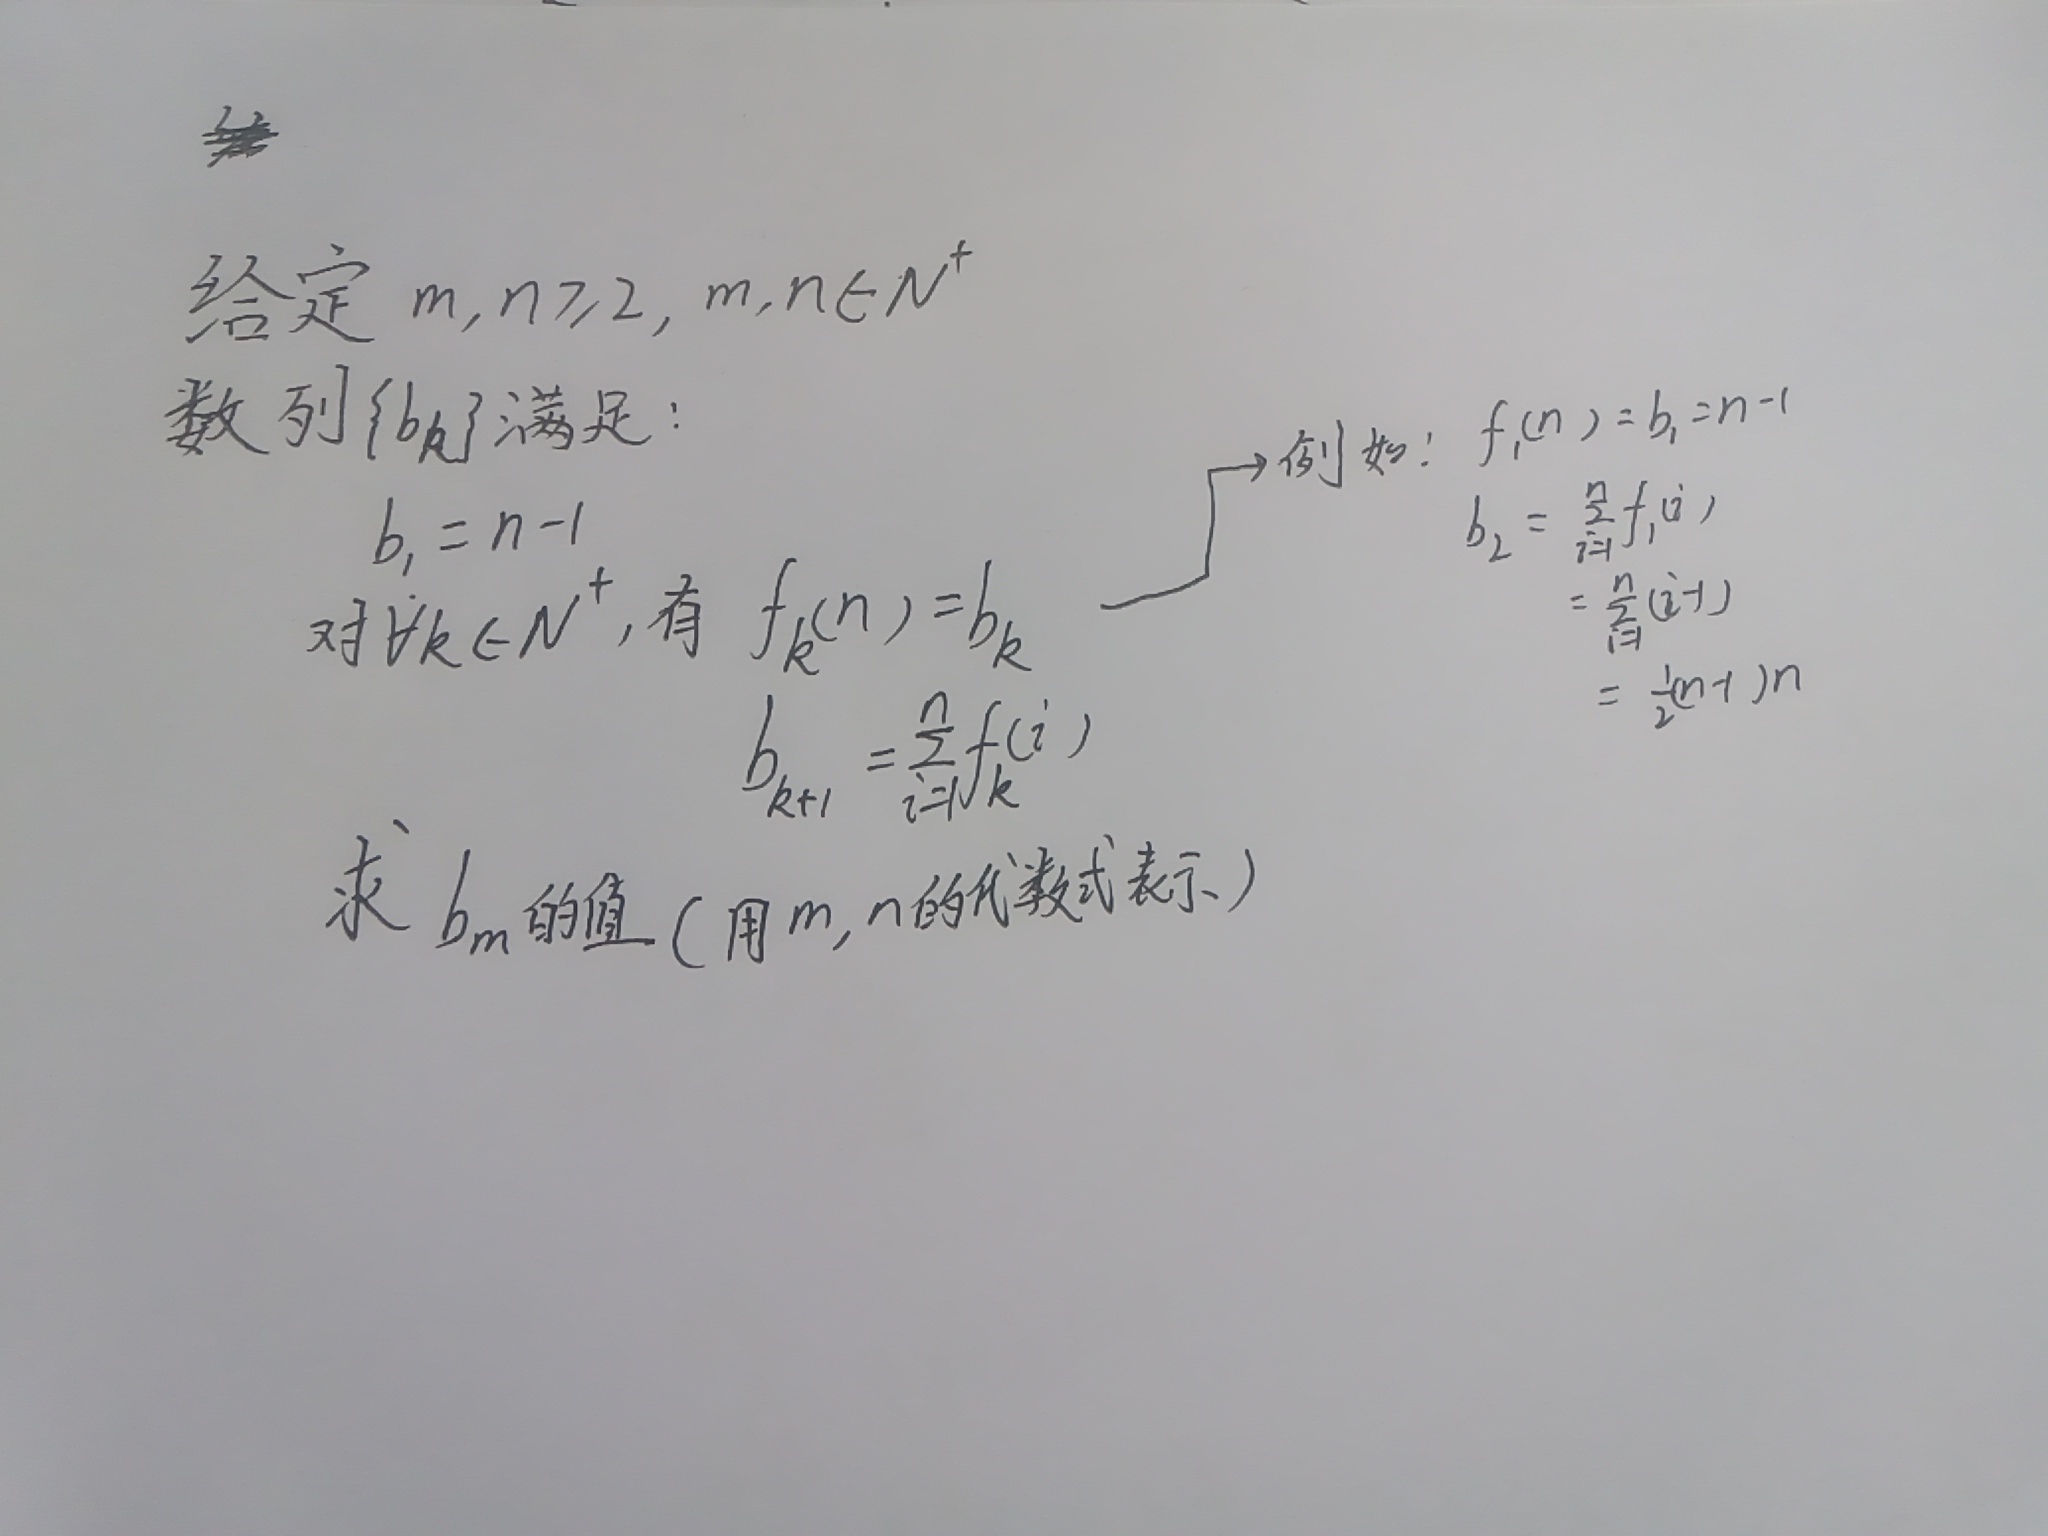 给定 m,n≥2, m,n∈N⁺
数列{bₖ}满足:
b₁=n-1
对∀k∈N⁺,有 fₖ(n)=bₖ
bₖ₊₁=∑ⁿᵢ₌₁fₖ(i)
求 bₘ的值(用m,n的代数式表示)
→例如: f₁(n)=b₁=n-1
b₂=∑ⁿᵢ₌₁f₁(i)
=∑ⁿᵢ₌₁(i-1)
=½(n-1)n